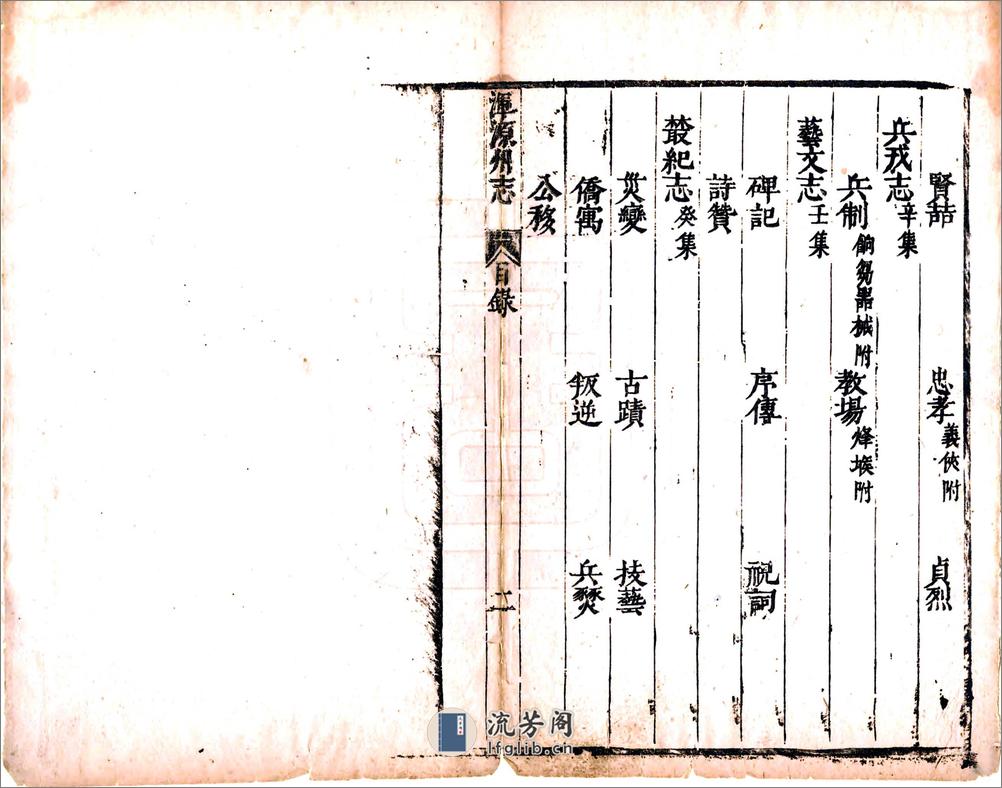 賢喆　忠孝義俠附　貞烈
兵戎志辛集
兵制餉芻器械附　教場烽堠附
藝文志壬集
碑記　序傳　祝詞
詩贊
叢紀志癸集
災變　古蹟　技藝
僑寓　叛逆　兵燹
公移
渾源州志　目錄　二
流芳阁
lfglib.cn